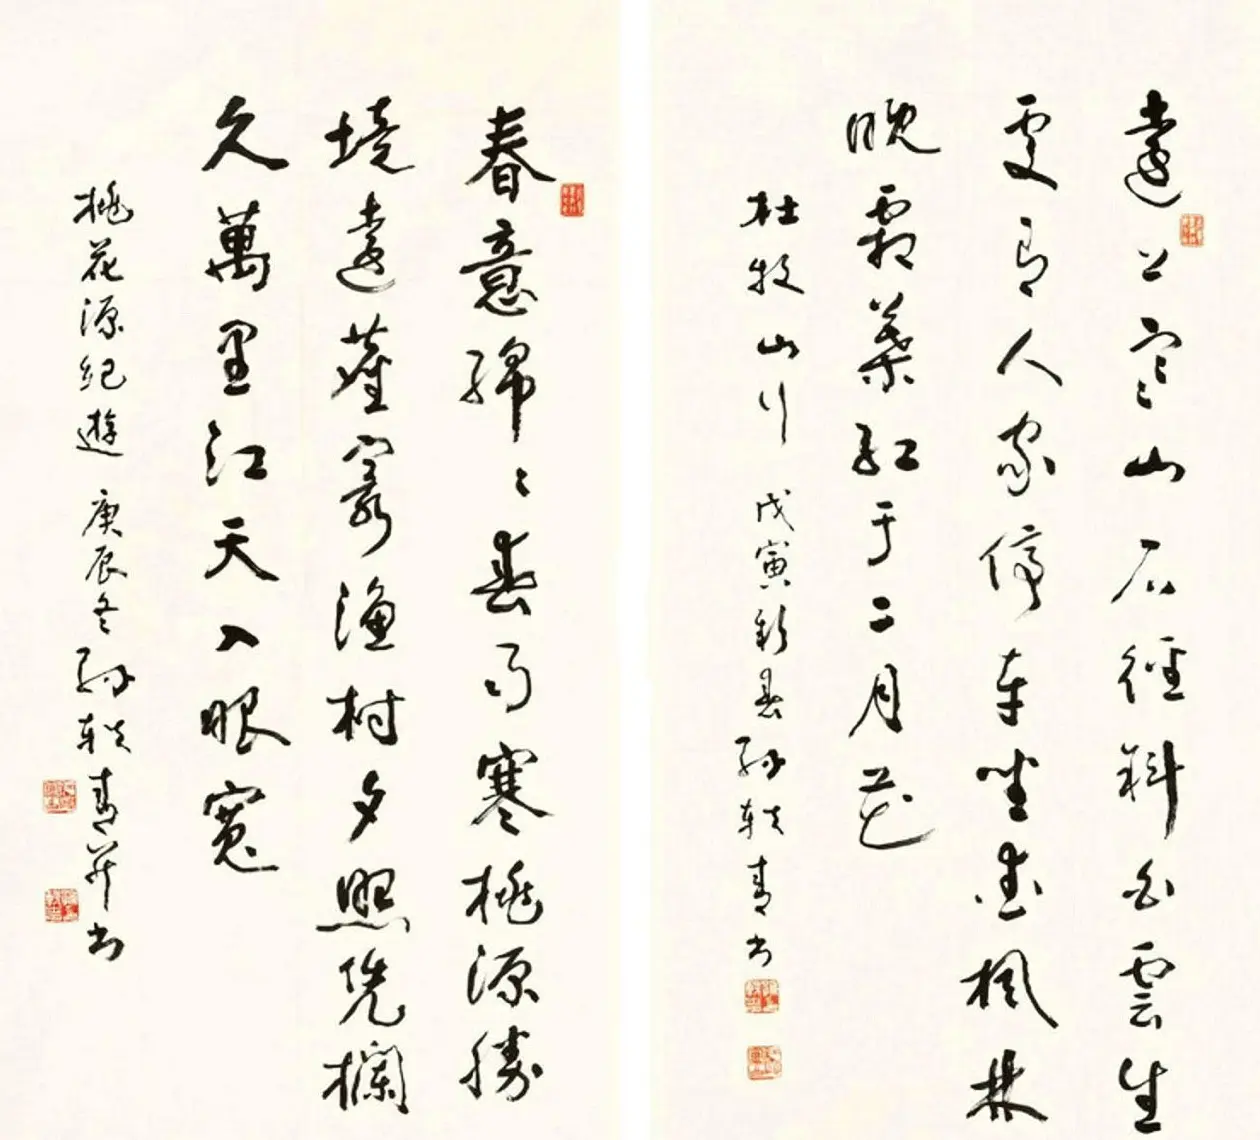 遠上寒山石徑斜白雲生
處有人家停車坐愛楓林
晚霜葉紅于二月花
杜牧山行 戊寅新春 孫軼青书
春意綿々春雨寒桃源勝
境遠塵寰漁村夕照凭欄
久萬里江天入眼寬
桃花源紀遊 庚辰冬 孫軼青并书